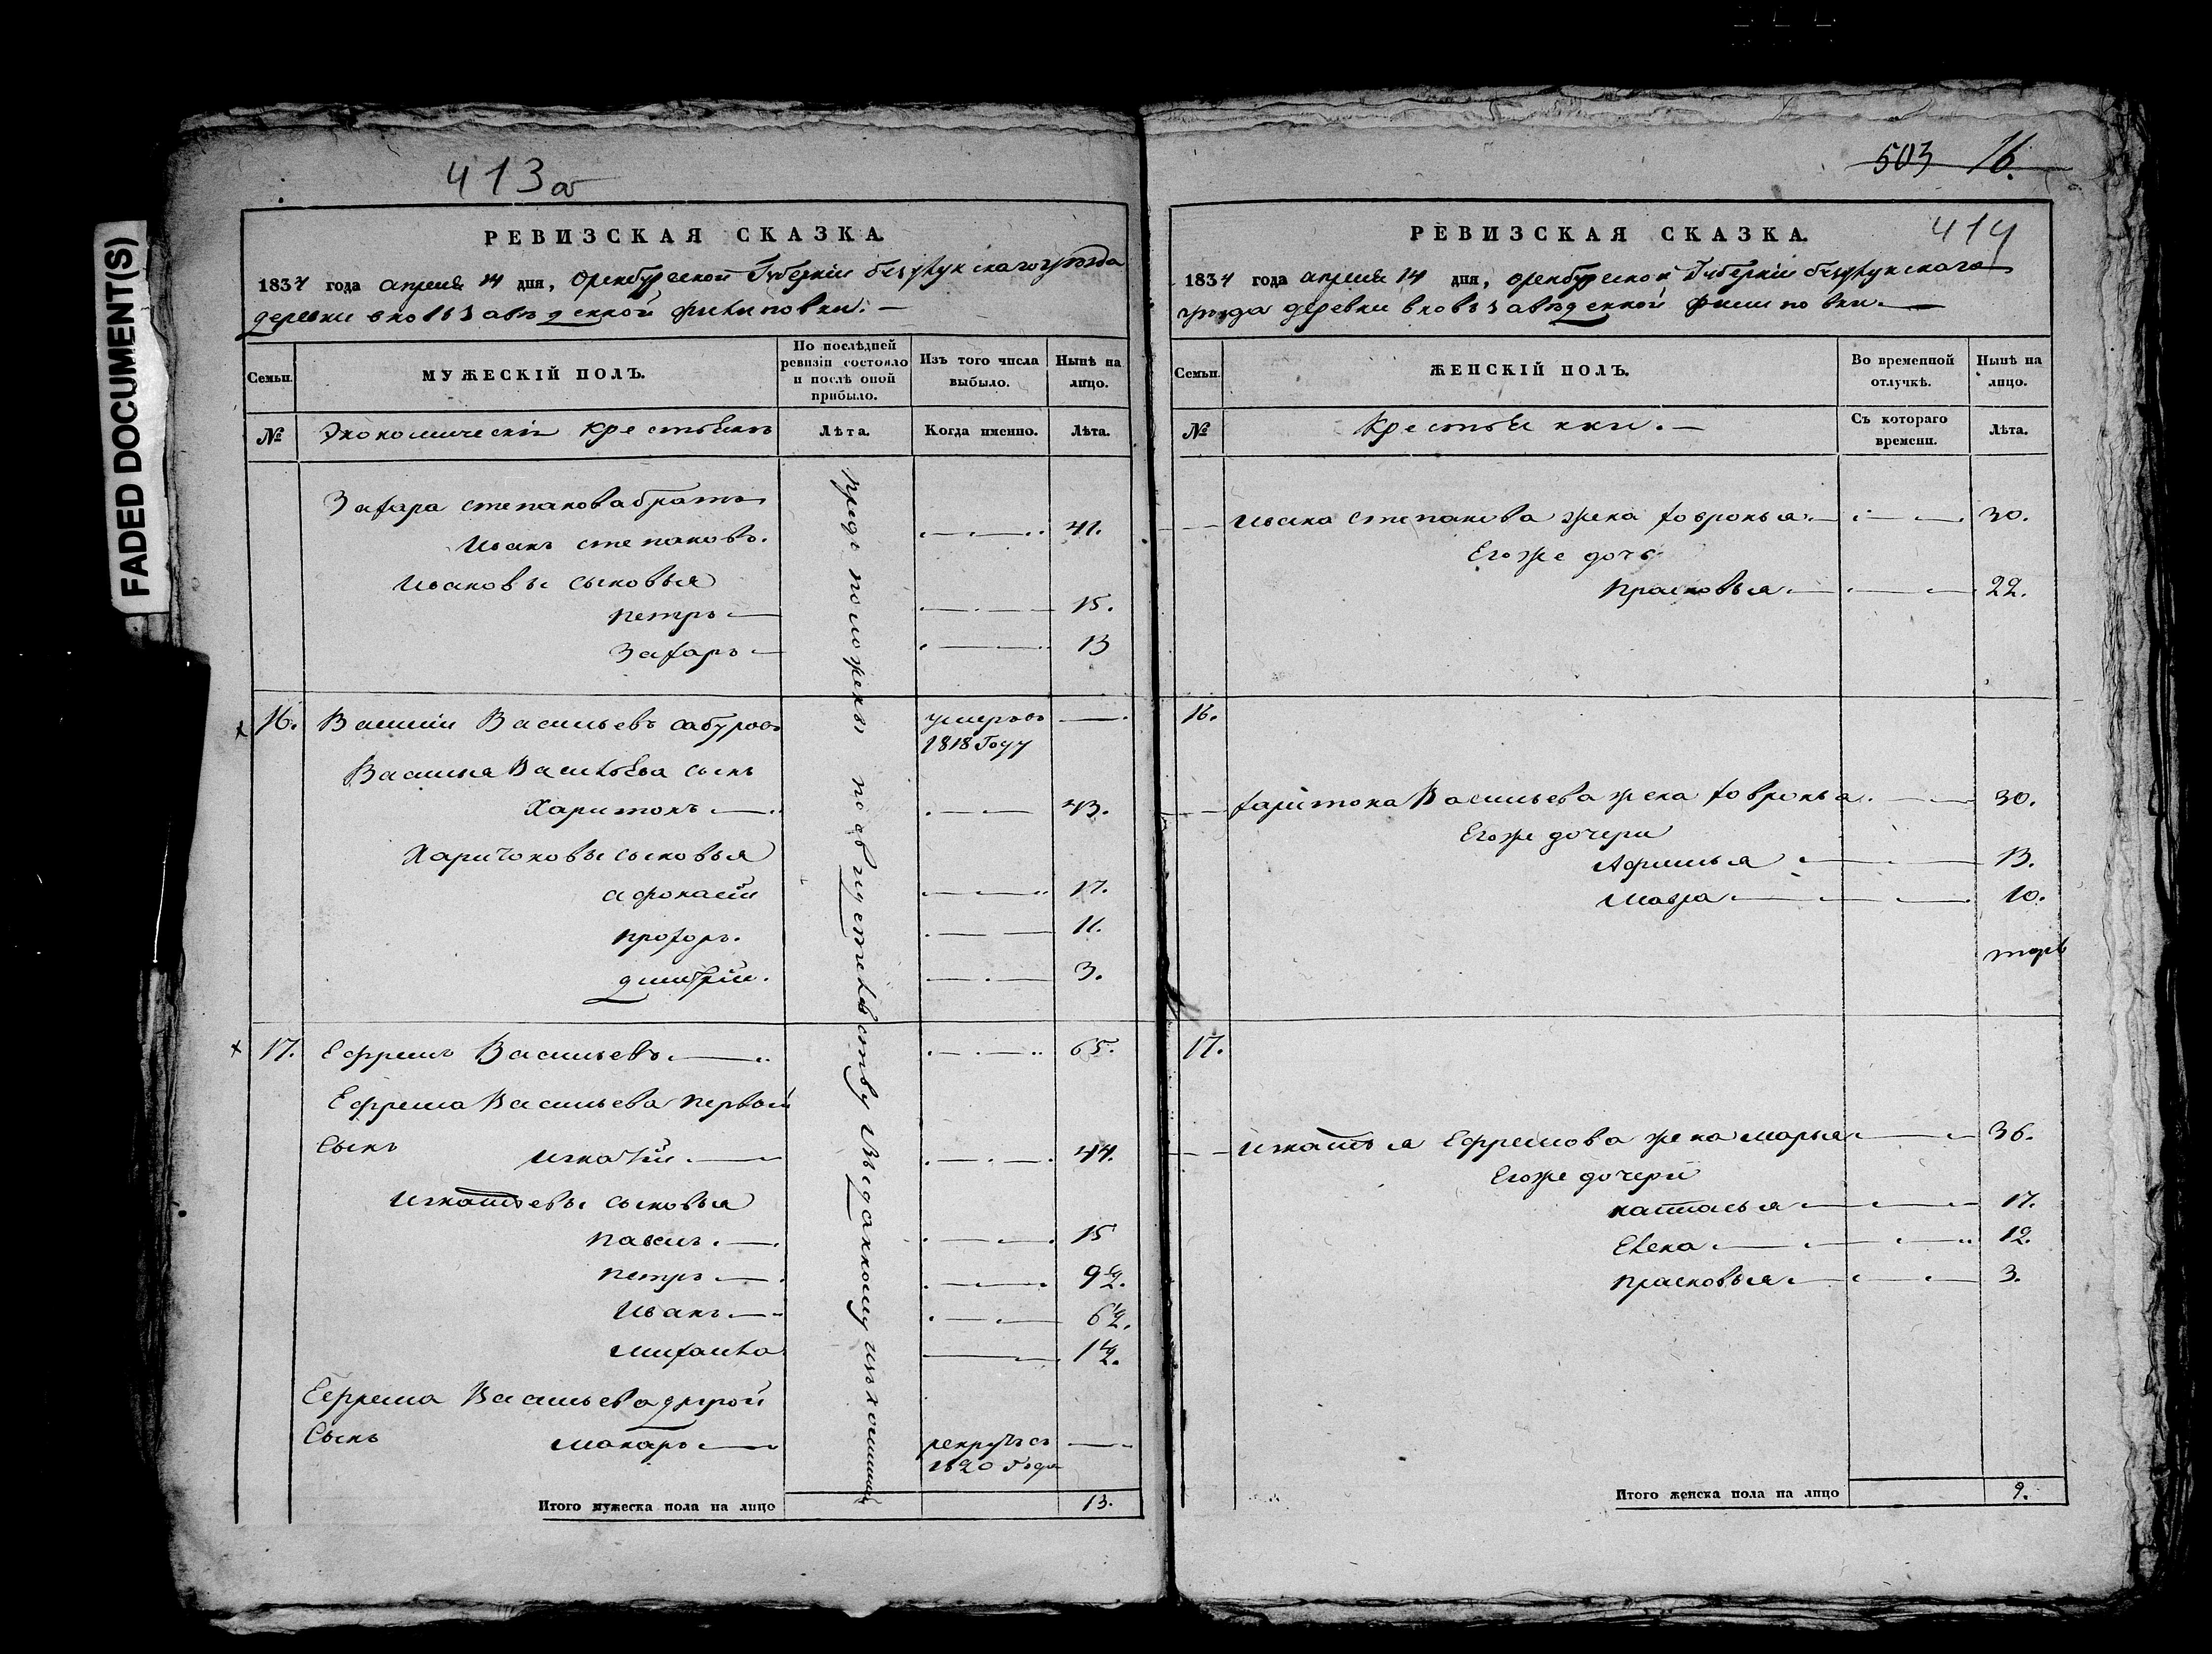 FADED DOCUMENT(S)
413 об
РЕВИЗСКАЯ СКАЗКА.
1834 года апреля 14 дня, Оренбургской Губернии бузулукскаго уезда
деревни вновь заведенной филиповки. —
Семьи.
МУЖЕСКІЙ ПОЛЪ.
По послѣдней ревизіи состояло и послѣ оной прибыло.
Изъ того числа выбыло.
Нынѣ на лицо.
№
Экономическіи крестьянъ
Лѣта.
Когда именно.
Лѣта.
Захара степанова братъ
Иванъ степановъ. 41.
Ивановы сыновья
петръ — 15.
Захаръ — 13
16. Василіи Васильевъ сабуровъ умеръ въ —
1818 Году
Василья Васильева сынъ
Харитонъ — 43.
Харитоновы сыновья
афонасіи 17.
прохоръ. 11.
дмитріи. 3.
17. Ефремъ Васильевъ — 65.
Ефрема Васильева первои
сынъ игнатіи — 44.
Игнатьевы сыновья
павелъ — 15
петръ — 9 1/2.
Иванъ — 6 1/2.
михаила 1 1/2.
Ефрема Васильева другой
сынъ макаръ — рекрутъ съ —
1820 Года
Итого мужеска пола на лицо 13.
503 16.
414
РЕВИЗСКАЯ СКАЗКА.
1834 года апреля 14 дня, оренбургской Губерніи бузулукскаго
уезда деревни вновь заведенной филиповки. —
Семьи.
ЖЕНСКІЙ ПОЛЪ.
Во временной отлучкѣ.
Нынѣ на лицо.
№
Крестьянки. —
Съ котораго времени.
Лѣта.
Ивана степанова жена ховронья — 30.
Егоже дочь
прасковья — 22.
16.
харитона Васильева жена ховронья — 30.
Егоже дочери
Афимья — 13.
Мавра — 10.
17.
Игнатья Ефремова жена марья — 36.
Егоже дочери
настасья — 17.
Елена — 12.
прасковья — 3.
Итого женска пола на лицо 9.